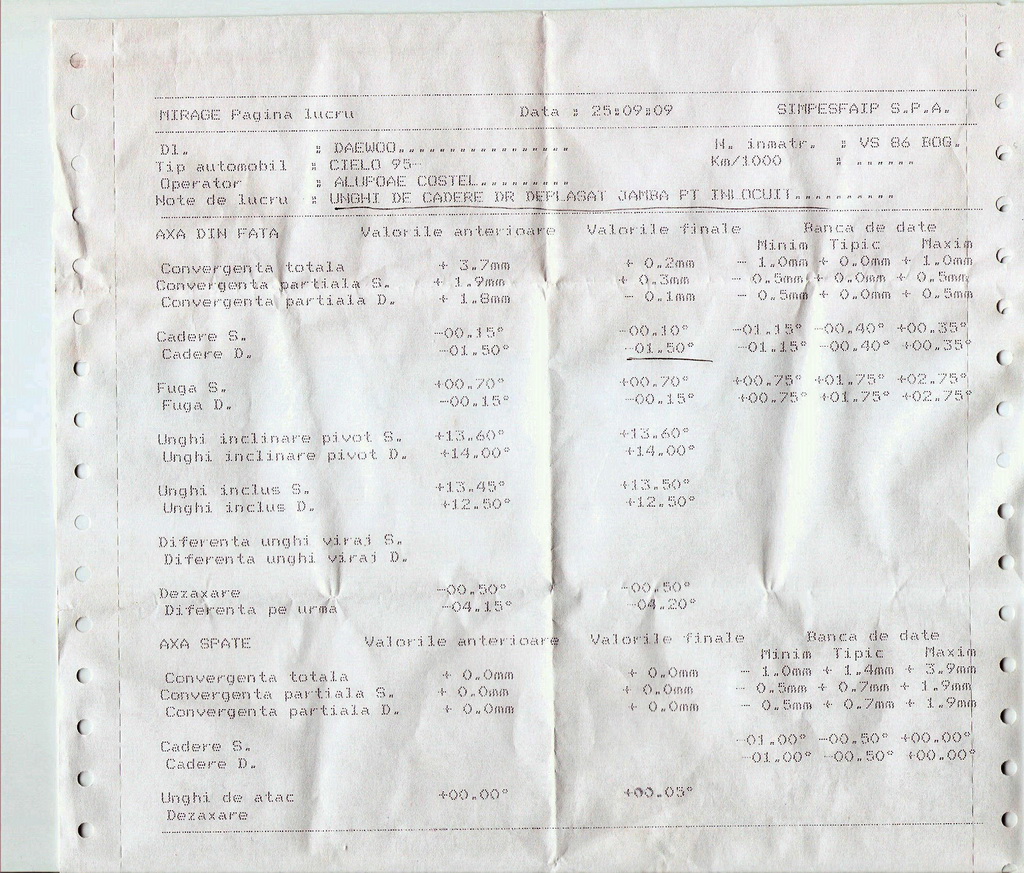 MIRAGE Pagina lucru Data : 25:09:09 SIMPESFAIP S.P.A.
Dl. : DAEWOO................. N. inmatr. : VS 86 BOG.
Tip automobil : CIELO 95- Km/1000 : ......
Operator : ALUPOAE COSTEL.........
Note de lucru : UNGHI DE CADERE DR DEPLASAT JAMBA PT INLOCUIT..........
AXA DIN FATA Valorile anterioare Valorile finale Banca de date
Minim Tipic Maxim
Convergenta totala + 3.7mm + 0.2mm - 1.0mm + 0.0mm + 1.0mm
Convergenta partiala S. + 1.9mm + 0.3mm - 0.5mm + 0.0mm + 0.5mm
Convergenta partiala D. + 1.8mm - 0.1mm - 0.5mm + 0.0mm + 0.5mm
Cadere S. -00.15° -00.10° -01.15° -00.40° +00.35°
Cadere D. -01.50° -01.50° -01.15° -00.40° +00.35°
Fuga S. +00.70° +00.70° +00.75° +01.75° +02.75°
Fuga D. -00.15° -00.15° +00.75° +01.75° +02.75°
Unghi inclinare pivot S. +13.60° +13.60°
Unghi inclinare pivot D. +14.00° +14.00°
Unghi inclus S. +13.45° +13.50°
Unghi inclus D. +12.50° +12.50°
Diferenta unghi viraj S.
Diferenta unghi viraj D.
Dezaxare -00.50° -00.50°
Diferenta pe urma -04.15° -04.20°
AXA SPATE Valorile anterioare Valorile finale Banca de date
Minim Tipic Maxim
Convergenta totala + 0.0mm + 0.0mm - 1.0mm + 1.4mm + 3.9mm
Convergenta partiala S. + 0.0mm + 0.0mm - 0.5mm + 0.7mm + 1.9mm
Convergenta partiala D. + 0.0mm + 0.0mm - 0.5mm + 0.7mm + 1.9mm
Cadere S. -01.00° -00.50° +00.00°
Cadere D. -01.00° -00.50° +00.00°
Unghi de atac +00.00° +00.05°
Dezaxare